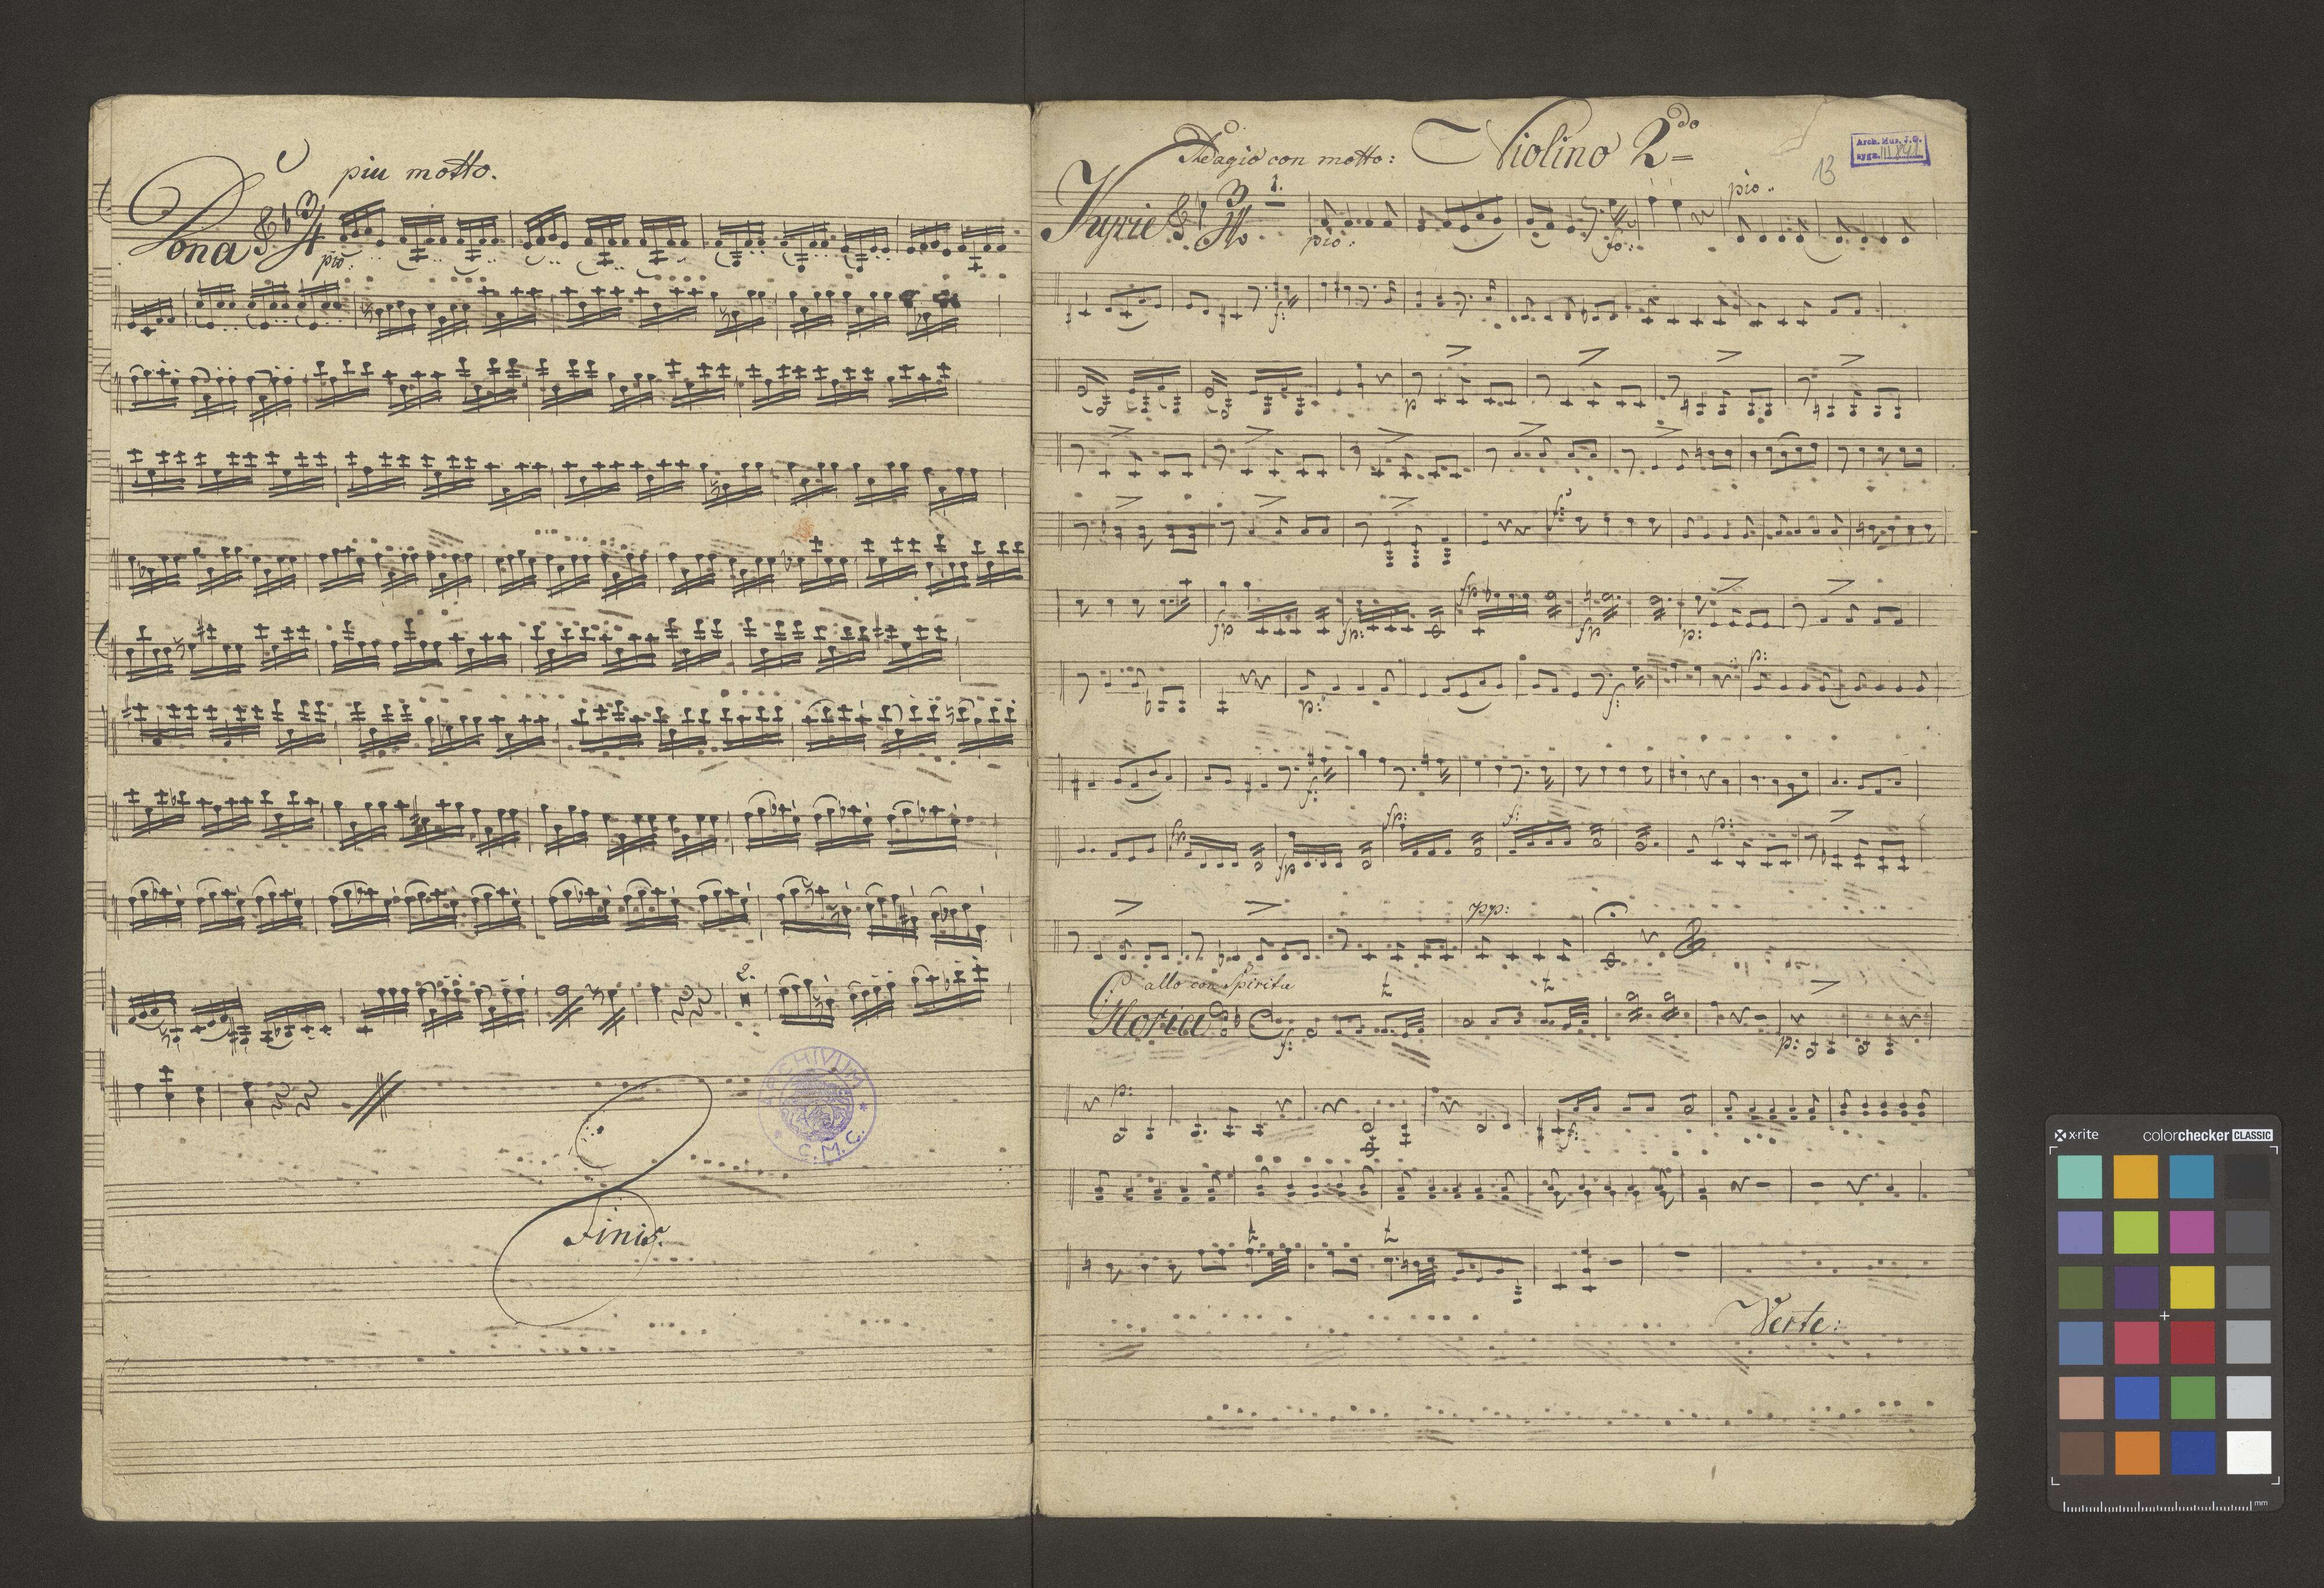 piu motto.
Dona
3
4
pio:
2.
ARCHIVUM
C.M.C.
Finis.
Adagio con motto: Violino 2do
13
Arch. Mus. J.G.
sygn. III
Kyrie
3
1.
pio:
fo:
pio..
f:
p
fp
fp:
fp
fp
p:
p:
f:
p:
f:
p:
fp
fp
fp:
f:
pp:
allo con Spiritu
Gloria
C
f:
p:
p:
f:
Verte:
x·rite
colorchecker CLASSIC
mm